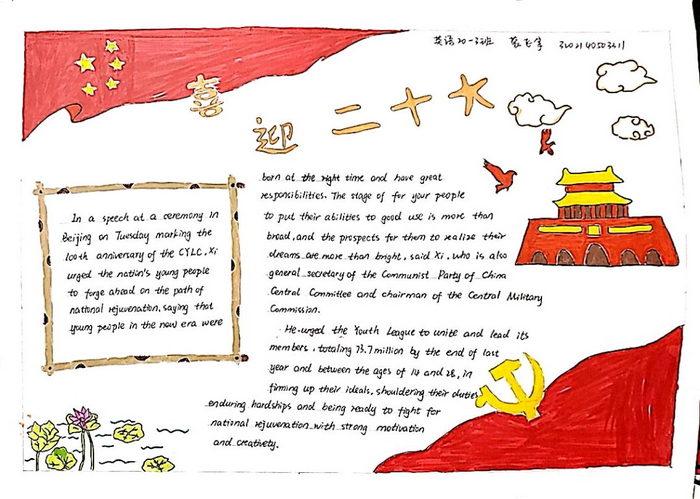 英语20-3班 3202140503211
喜迎二十大
In a speech at a ceremony in
Beijing on Tuesday marking the
100th anniversary of the CYLC, Xi
urged the nation's young people
to forge ahead on the path of
national rejuvenation, saying that
young people in the new era were
born at the right time and have great
responsibilities. The stage of for your people
to put their abilities to good use is more than
broad, and the prospects for them to realize their
dreams are more than bright, said Xi, who is also
general secretary of the Communist Party of China
Central Committee and chairman of the Central Military
Commission.
He urged the Youth League to unite and lead its
members, totaling 73.7 million by the end of last
year and between the ages of 14 and 28, in
firming up their ideals, shouldering their duties
enduring hardships and being ready to fight for
national rejuvenation with strong motivation
and creativity.